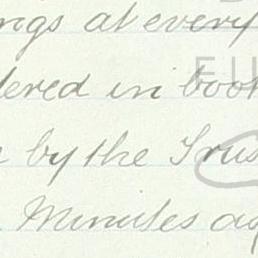 ngs at every
dered in book
by the Trus
Minutes ag